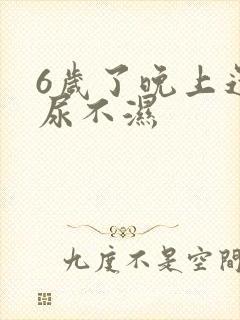 6歲了晚上
尿不濕
九度不是空間